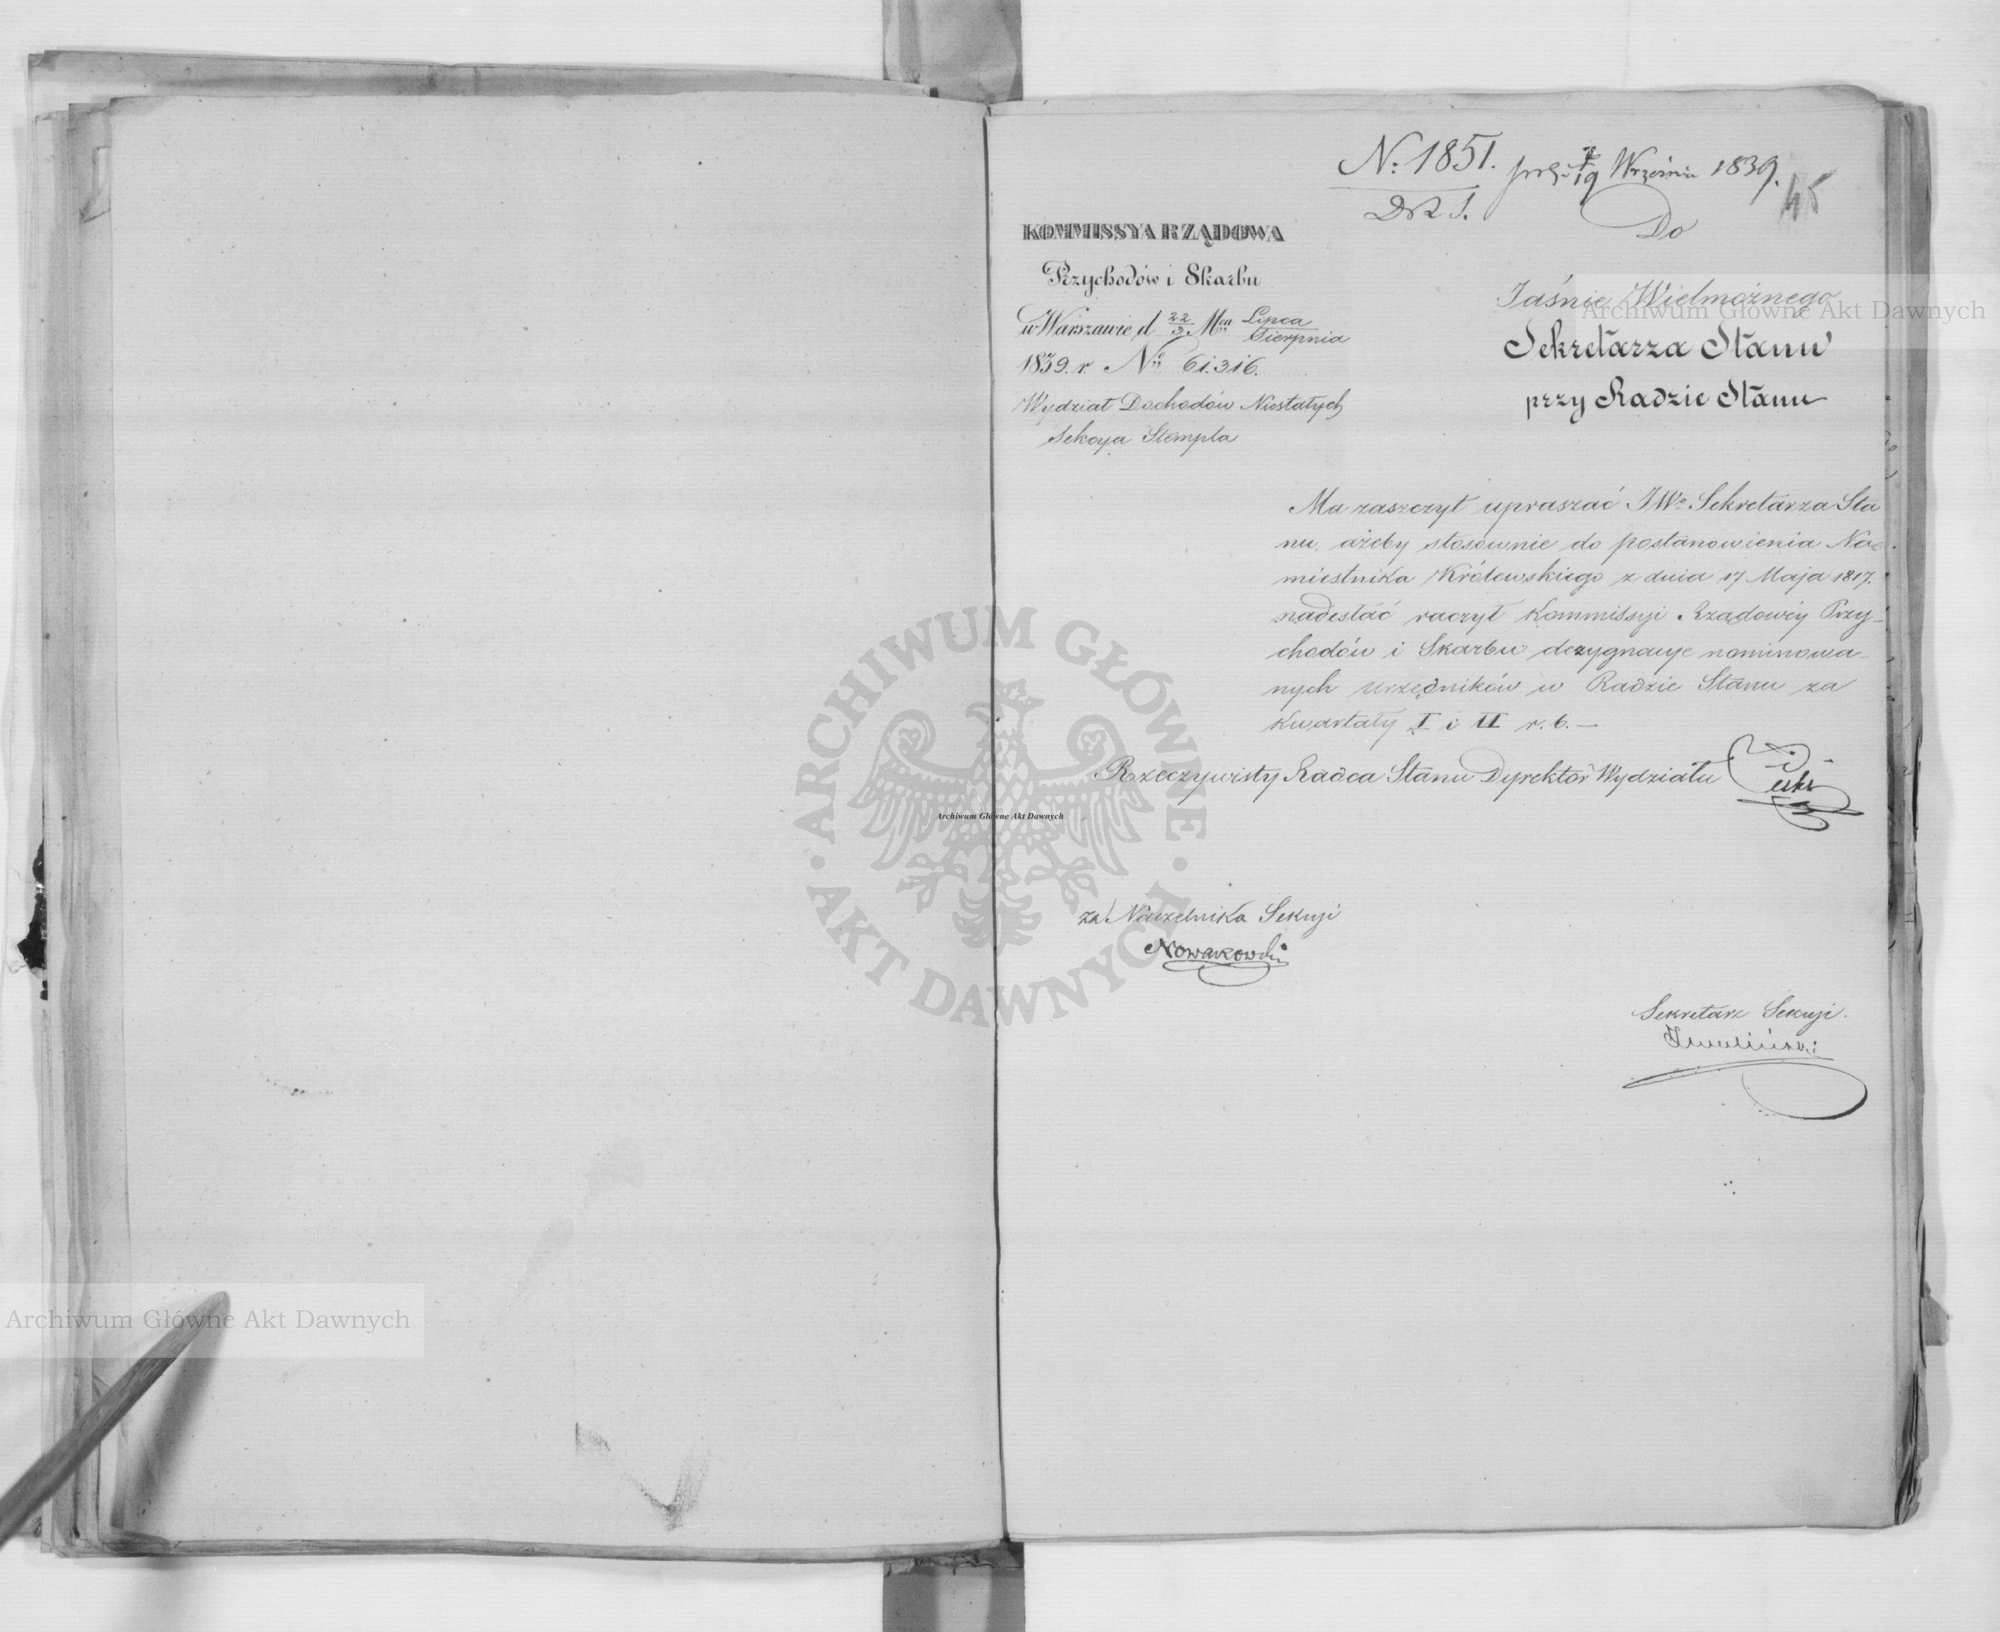 N: 1851. 7/19 Września 1839.
45
Do
KOMMISSYA RZĄDOWA
Przychodów i Skarbu
w Warszawie, d 22/3 Mca Lipca/Sierpnia
1839. r. No 61.316.
Wydział Dochodów Niestałych
Sekcya Stempla
Jaśnie Wielmożnego
Sekretarza Stanu
przy Radzie Stanu
Ma zaszczyt upraszać JWo Sekretarza Sta
nu, ażeby stosownie do postanowienia Na-
miestnika Królewskiego z dnia 17 Maja 1817.
nadesłać raczył Kommissyi Rządowéy Przy-
chodów i Skarbu dezygnacye nominowa-
nych urzędników w Radzie Stanu za
Kwartały I i II r. b. —
Rzeczywisty Radca Stanu Dyrektor Wydziału
za Naczelnika Sekcyi
Nowakowski
Sekretarz Sekcyi.
Archiwum Główne Akt Dawnych
Archiwum Główne Akt Dawnych
Archiwum Główne Akt Dawnych
· ARCHIWUM GŁÓWNE · AKT DAWNYCH